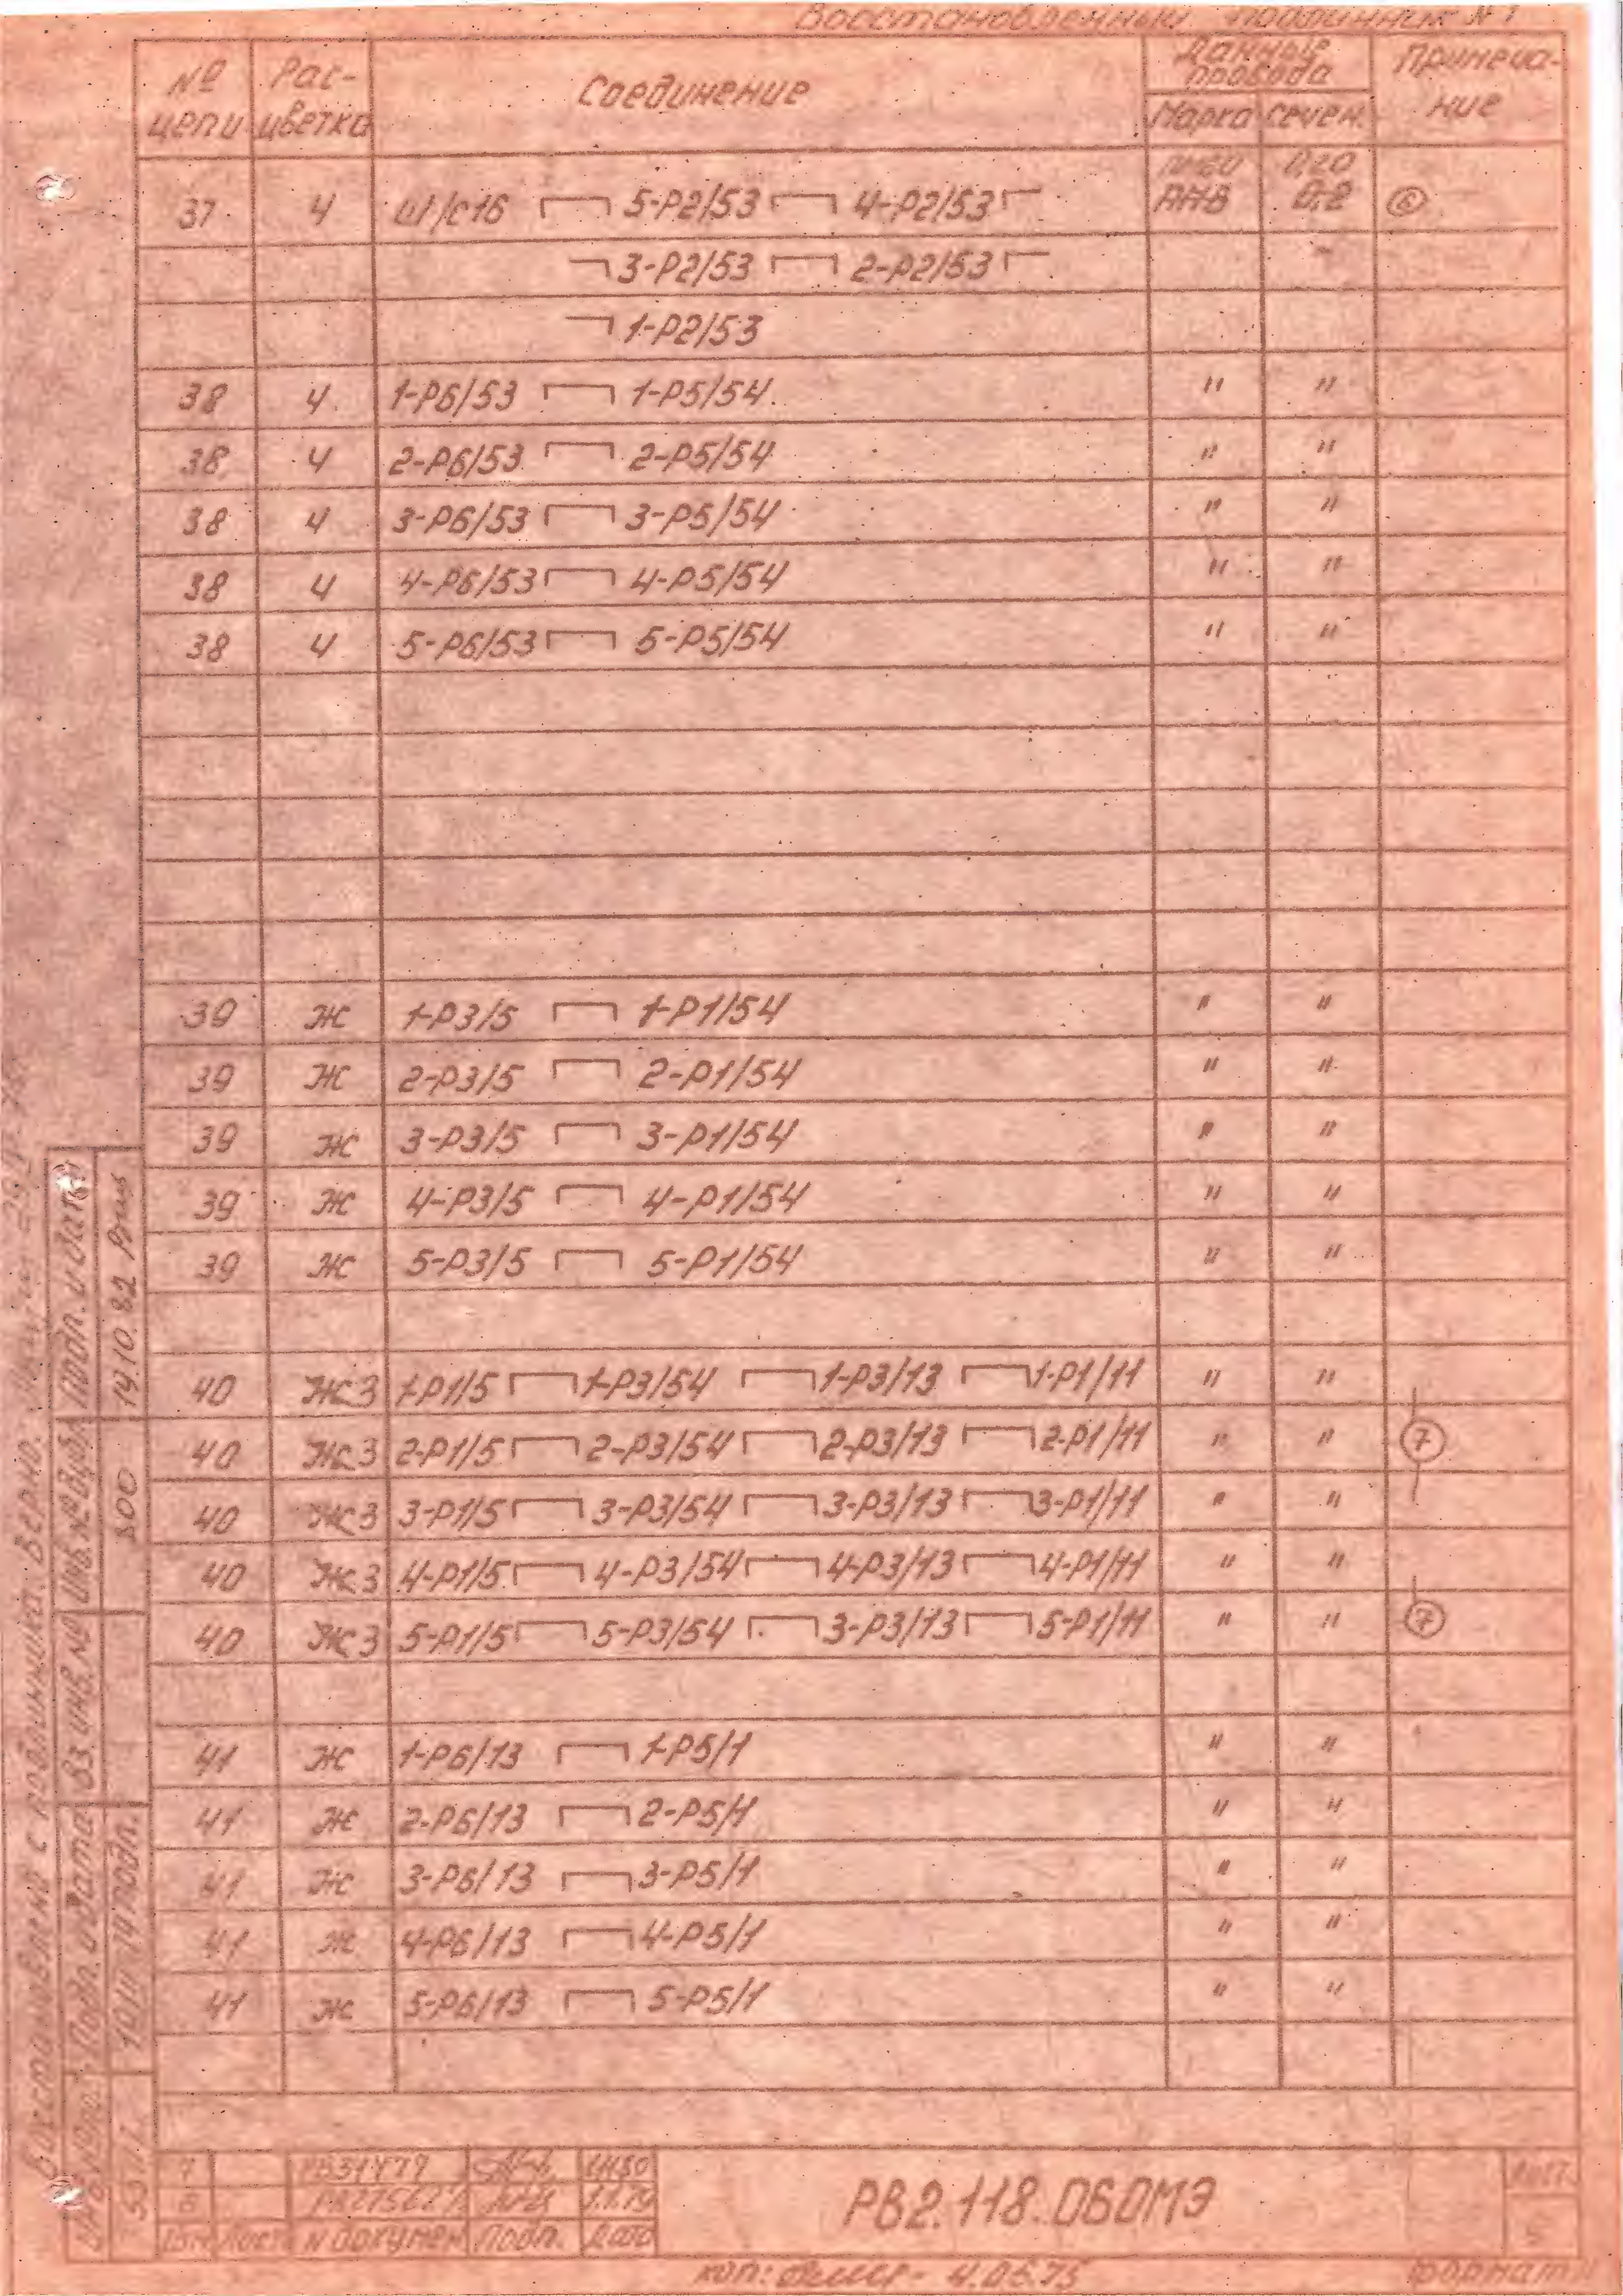 Восстановленный подлинник №1
№ цепи Рас-цветка Соединение Данные провода Примеча-ние
Марка сечен.
0,20
37 Ч Ш1/С16 5-Р2/53 4-Р2/53 АНВ 0,2 6
3-Р2/53 2-Р2/53
1-Р2/53
38 Ч 1-Р6/53 1-Р5/54 " "
38 Ч 2-Р6/53 2-Р5/54 " "
38 Ч 3-Р6/53 3-Р5/54 " "
38 Ч 4-Р6/53 4-Р5/54 " "
38 Ч 5-Р6/53 5-Р5/54 " "
39 Ж 1-Р3/5 1-Р1/54 " "
39 Ж 2-Р3/5 2-Р1/54 " "
39 Ж 3-Р3/5 3-Р1/54 " "
39 Ж 4-Р3/5 4-Р1/54 " "
39 Ж 5-Р3/5 5-Р1/54 " "
40 ЖЗ 1-Р1/5 1-Р3/54 1-Р3/13 1-Р1/11 " "
40 ЖЗ 2-Р1/5 2-Р3/54 2-Р3/13 2-Р1/11 " " 7
40 ЖЗ 3-Р1/5 3-Р3/54 3-Р3/13 3-Р1/11 " "
40 ЖЗ 4-Р1/5 4-Р3/54 4-Р3/13 4-Р1/11 " "
40 ЖЗ 5-Р1/5 5-Р3/54 3-Р3/13 5-Р1/11 " " 7
41 Ж 1-Р6/13 1-Р5/1 " "
41 Ж 2-Р6/13 2-Р5/1 " "
41 Ж 3-Р6/13 3-Р5/1 " "
41 Ж 4-Р6/13 4-Р5/1 " "
41 Ж 5-Р6/13 5-Р5/1 " "
Восстановлено с подлинника. Верно.
Подп. и дата
14.10.82
Инв. № дубл.
800
Вз. инв. №
Подп. и дата
подл.
7
6
Изм Лист № докумен Подп. Дата
РВ2.118.060МЭ
Лист
5
коп: 4.06.75
формат